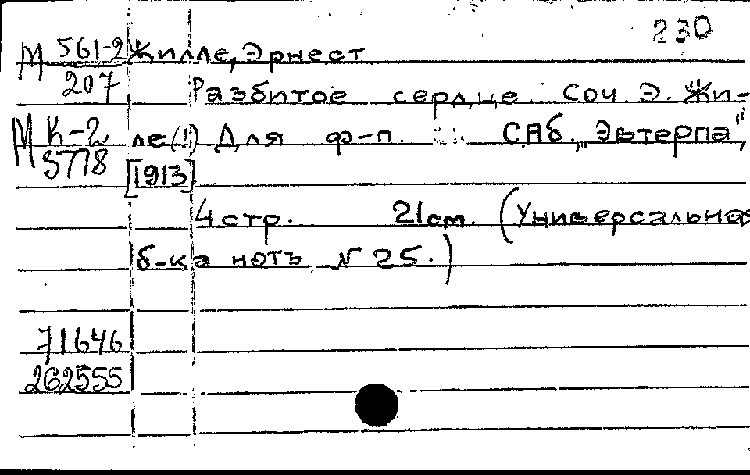 230
М 561-2 Жилле, Эрнест
207 Разбитое сердце. Соч. Э. Жи-
М К-2 ле(!) Для ф-п. СПб., „Эвтерпа",
5778 [1913]
4 стр. 21 см. (Универсальная
б-ка нотъ № 25.)
71646
262555